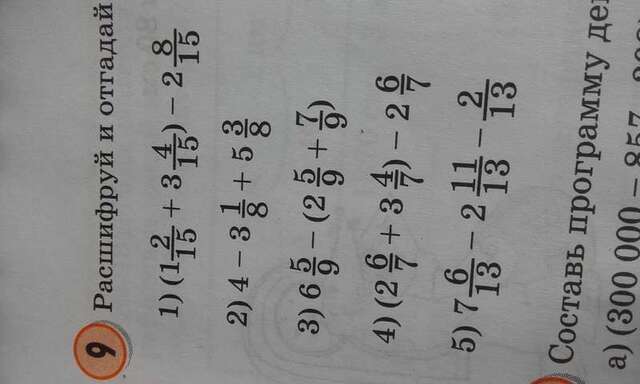 9 Расшифруй и отгадай
1) (1 2/15 + 3 4/15) − 2 8/15
2) 4 − 3 1/8 + 5 3/8
3) 6 5/9 − (2 5/9 + 7/9)
4) (2 6/7 + 3 4/7) − 2 6/7
5) 7 6/13 − 2 11/13 − 2/13
Составь программу
а) (300 000 − 857